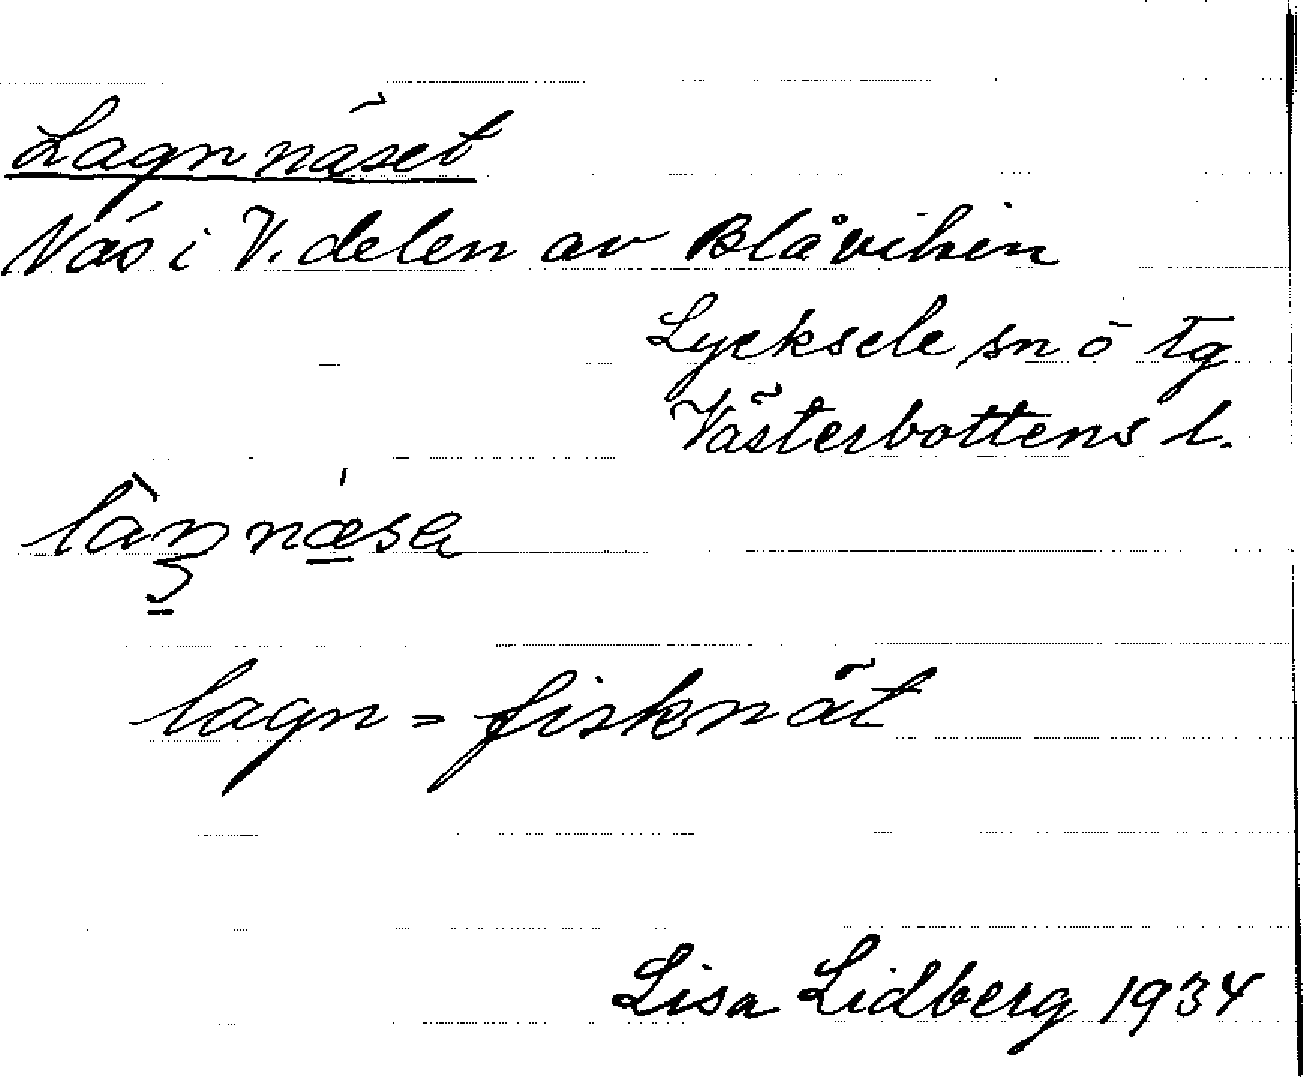 Lagnnäset
Näs i V. delen av Blåviken
Lycksele sn o tg
Västerbottens l.
lagn = fisknät
Lisa Lidberg 1934